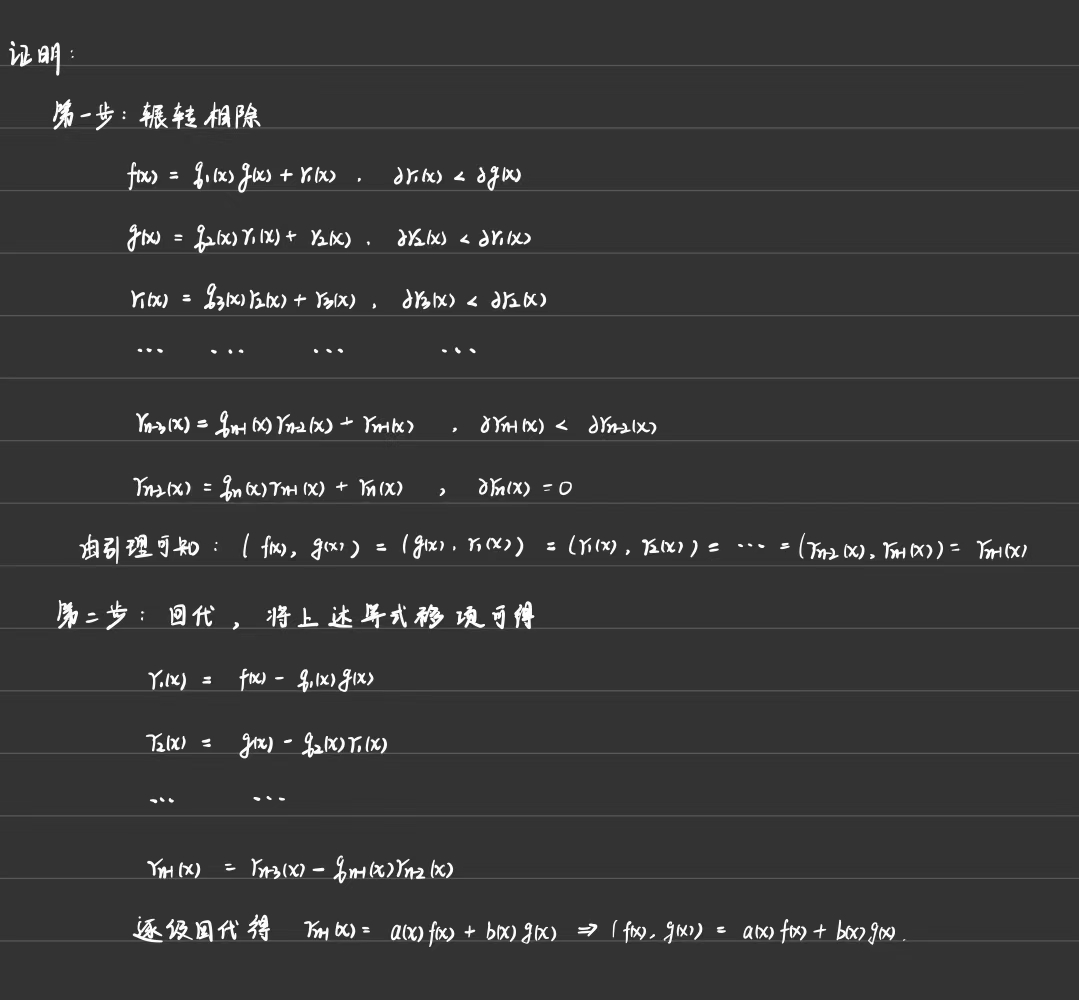 证明:
第一步: 辗转相除
f(x) = q₁(x)g(x) + r₁(x) , ∂r₁(x) < ∂g(x)
g(x) = q₂(x)r₁(x) + r₂(x) , ∂r₂(x) < ∂r₁(x)
r₁(x) = q₃(x)r₂(x) + r₃(x) , ∂r₃(x) < ∂r₂(x)
... ... ... ...
rₙ₋₃(x) = qₙ₋₁(x)rₙ₋₂(x) + rₙ₋₁(x) , ∂rₙ₋₁(x) < ∂rₙ₋₂(x)
rₙ₋₂(x) = qₙ(x)rₙ₋₁(x) + rₙ(x) , ∂rₙ(x) = 0
由引理可知: (f(x), g(x)) = (g(x), r₁(x)) = (r₁(x), r₂(x)) = ... = (rₙ₋₂(x), rₙ₋₁(x)) = rₙ₋₁(x)
第二步: 回代, 将上述等式移项可得
r₁(x) = f(x) - q₁(x)g(x)
r₂(x) = g(x) - q₂(x)r₁(x)
... ...
rₙ₋₁(x) = rₙ₋₃(x) - qₙ₋₁(x)rₙ₋₂(x)
逐级回代得 rₙ₋₁(x) = a(x)f(x) + b(x)g(x) ⇒ (f(x), g(x)) = a(x)f(x) + b(x)g(x).